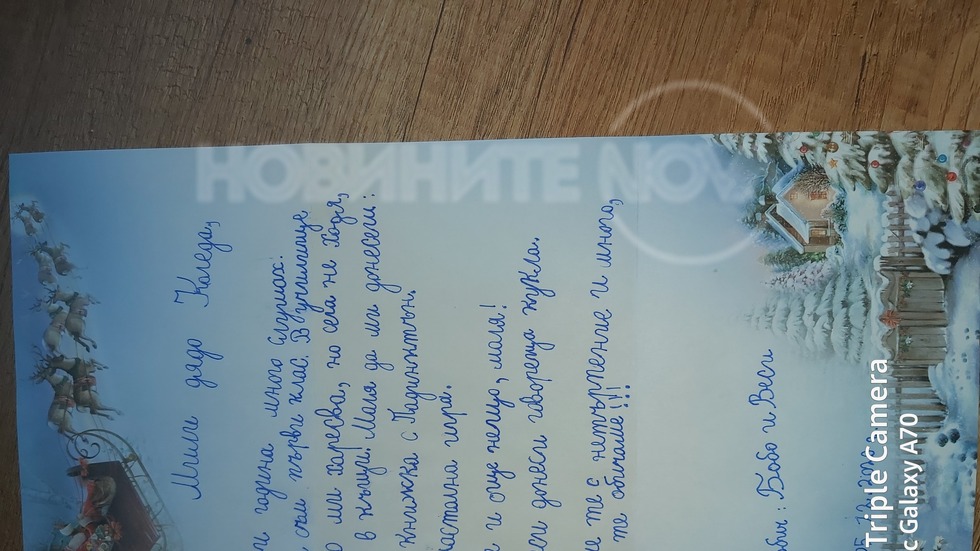 Мили дядо Коледа,
година много слушах.
съм първи клас. В училище
ми харесва, но сега не ходя,
в къщи. Моля да ми донесеш:
книжка с Падингтън.
настолна игра.
и още нещо, моля!
донеси говореща кукла.
те с нетърпение и много,
те обичаме!!!
Бобо и Веси
Triple Camera
Galaxy A70
НОВИНИТЕ NOVA